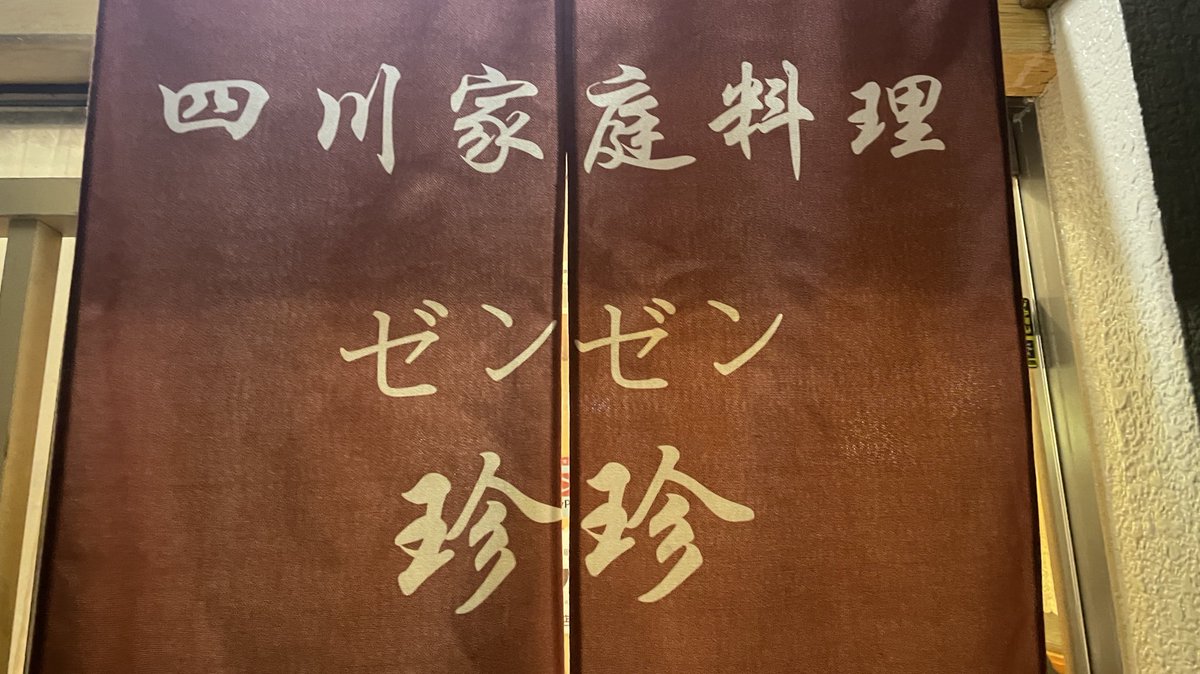 四川家庭料理
ゼンゼン
珍珍